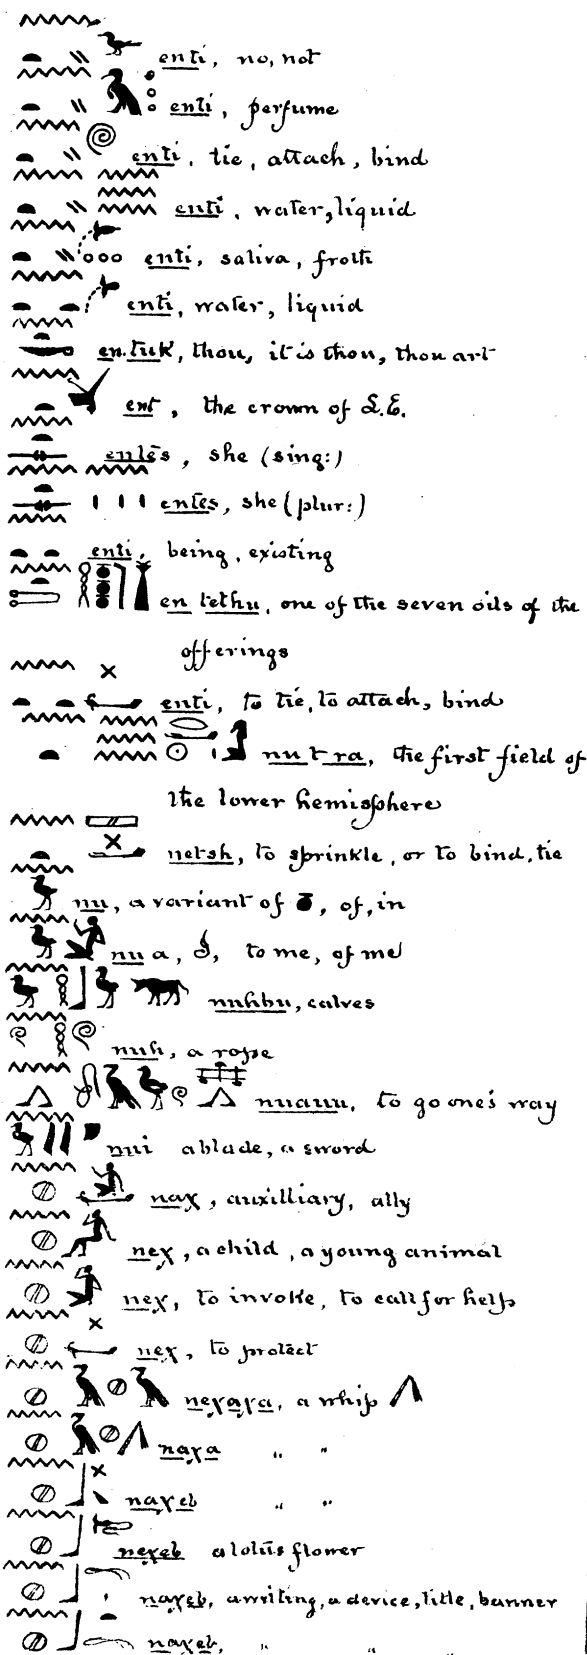 enti, no, not
enti, perfume
enti, tie, attach, bind
enti, water, liquid
enti, saliva, froth
enti, water, liquid
en.tuk, thou, it is thou, thou art
ent, the crown of L.E.
entes, she (sing:)
entes, she (plur:)
enti, being, existing
en tethu, one of the seven oils of the
offerings
enti, to tie, to attach, bind
nu t ra, the first field of
the lower hemisphere
netsh, to sprinkle, or to bind, tie
nu, a variant of, of, in
nu a, to me, of me
nuhbu, calves
nuh, a rope
nuauu, to go one's way
nui a blade, a sword
naχ, auxilliary, ally
neχ, a child, a young animal
neχ, to invoke, to call for help
neχ, to protect
neχaχa, a whip
naχa " "
naχeb " "
neχeb a lotus flower
naχeb, a writing, a device, title, banner
naχeb, " "